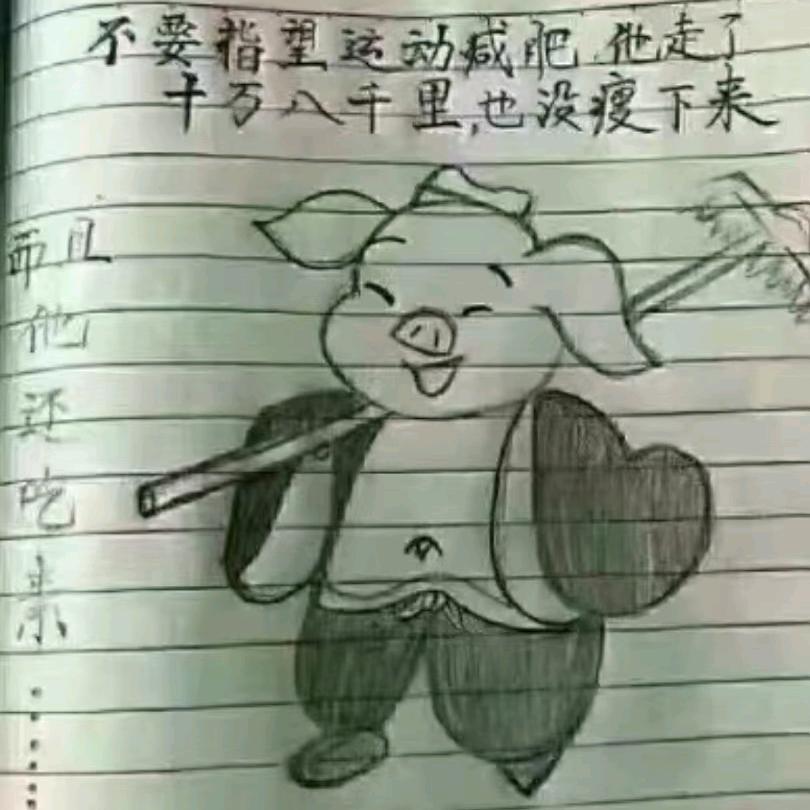 不要指望运动减肥,他走了
十万八千里,也没瘦下来
而且
他
还
吃
素
......